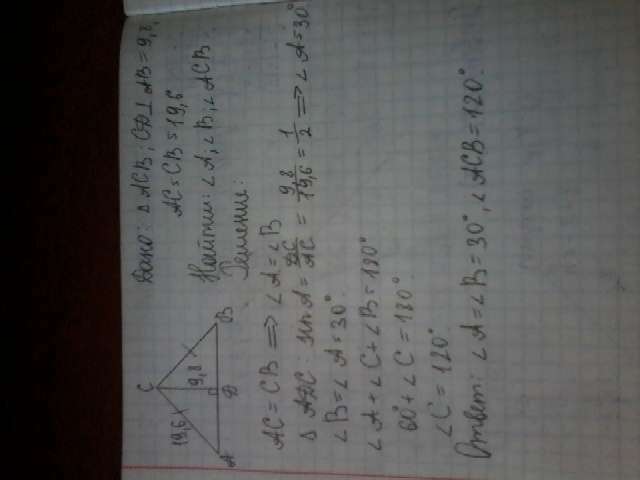 Дано: Δ ACB; CD⊥AB = 9,8,
AC = CB = 19,6
Найти: ∠A; ∠B; ∠ACB
Решение:
C
19,6
9,8
A
D
B
AC = CB => ∠A = ∠B
Δ ADC: sin A = DC/AC = 9,8/19,6 = 1/2 => ∠A = 30°
∠B = ∠A = 30°
∠A + ∠C + ∠B = 180°
60° + ∠C = 180°
∠C = 120°
Ответ: ∠A = ∠B = 30°, ∠ACB = 120°